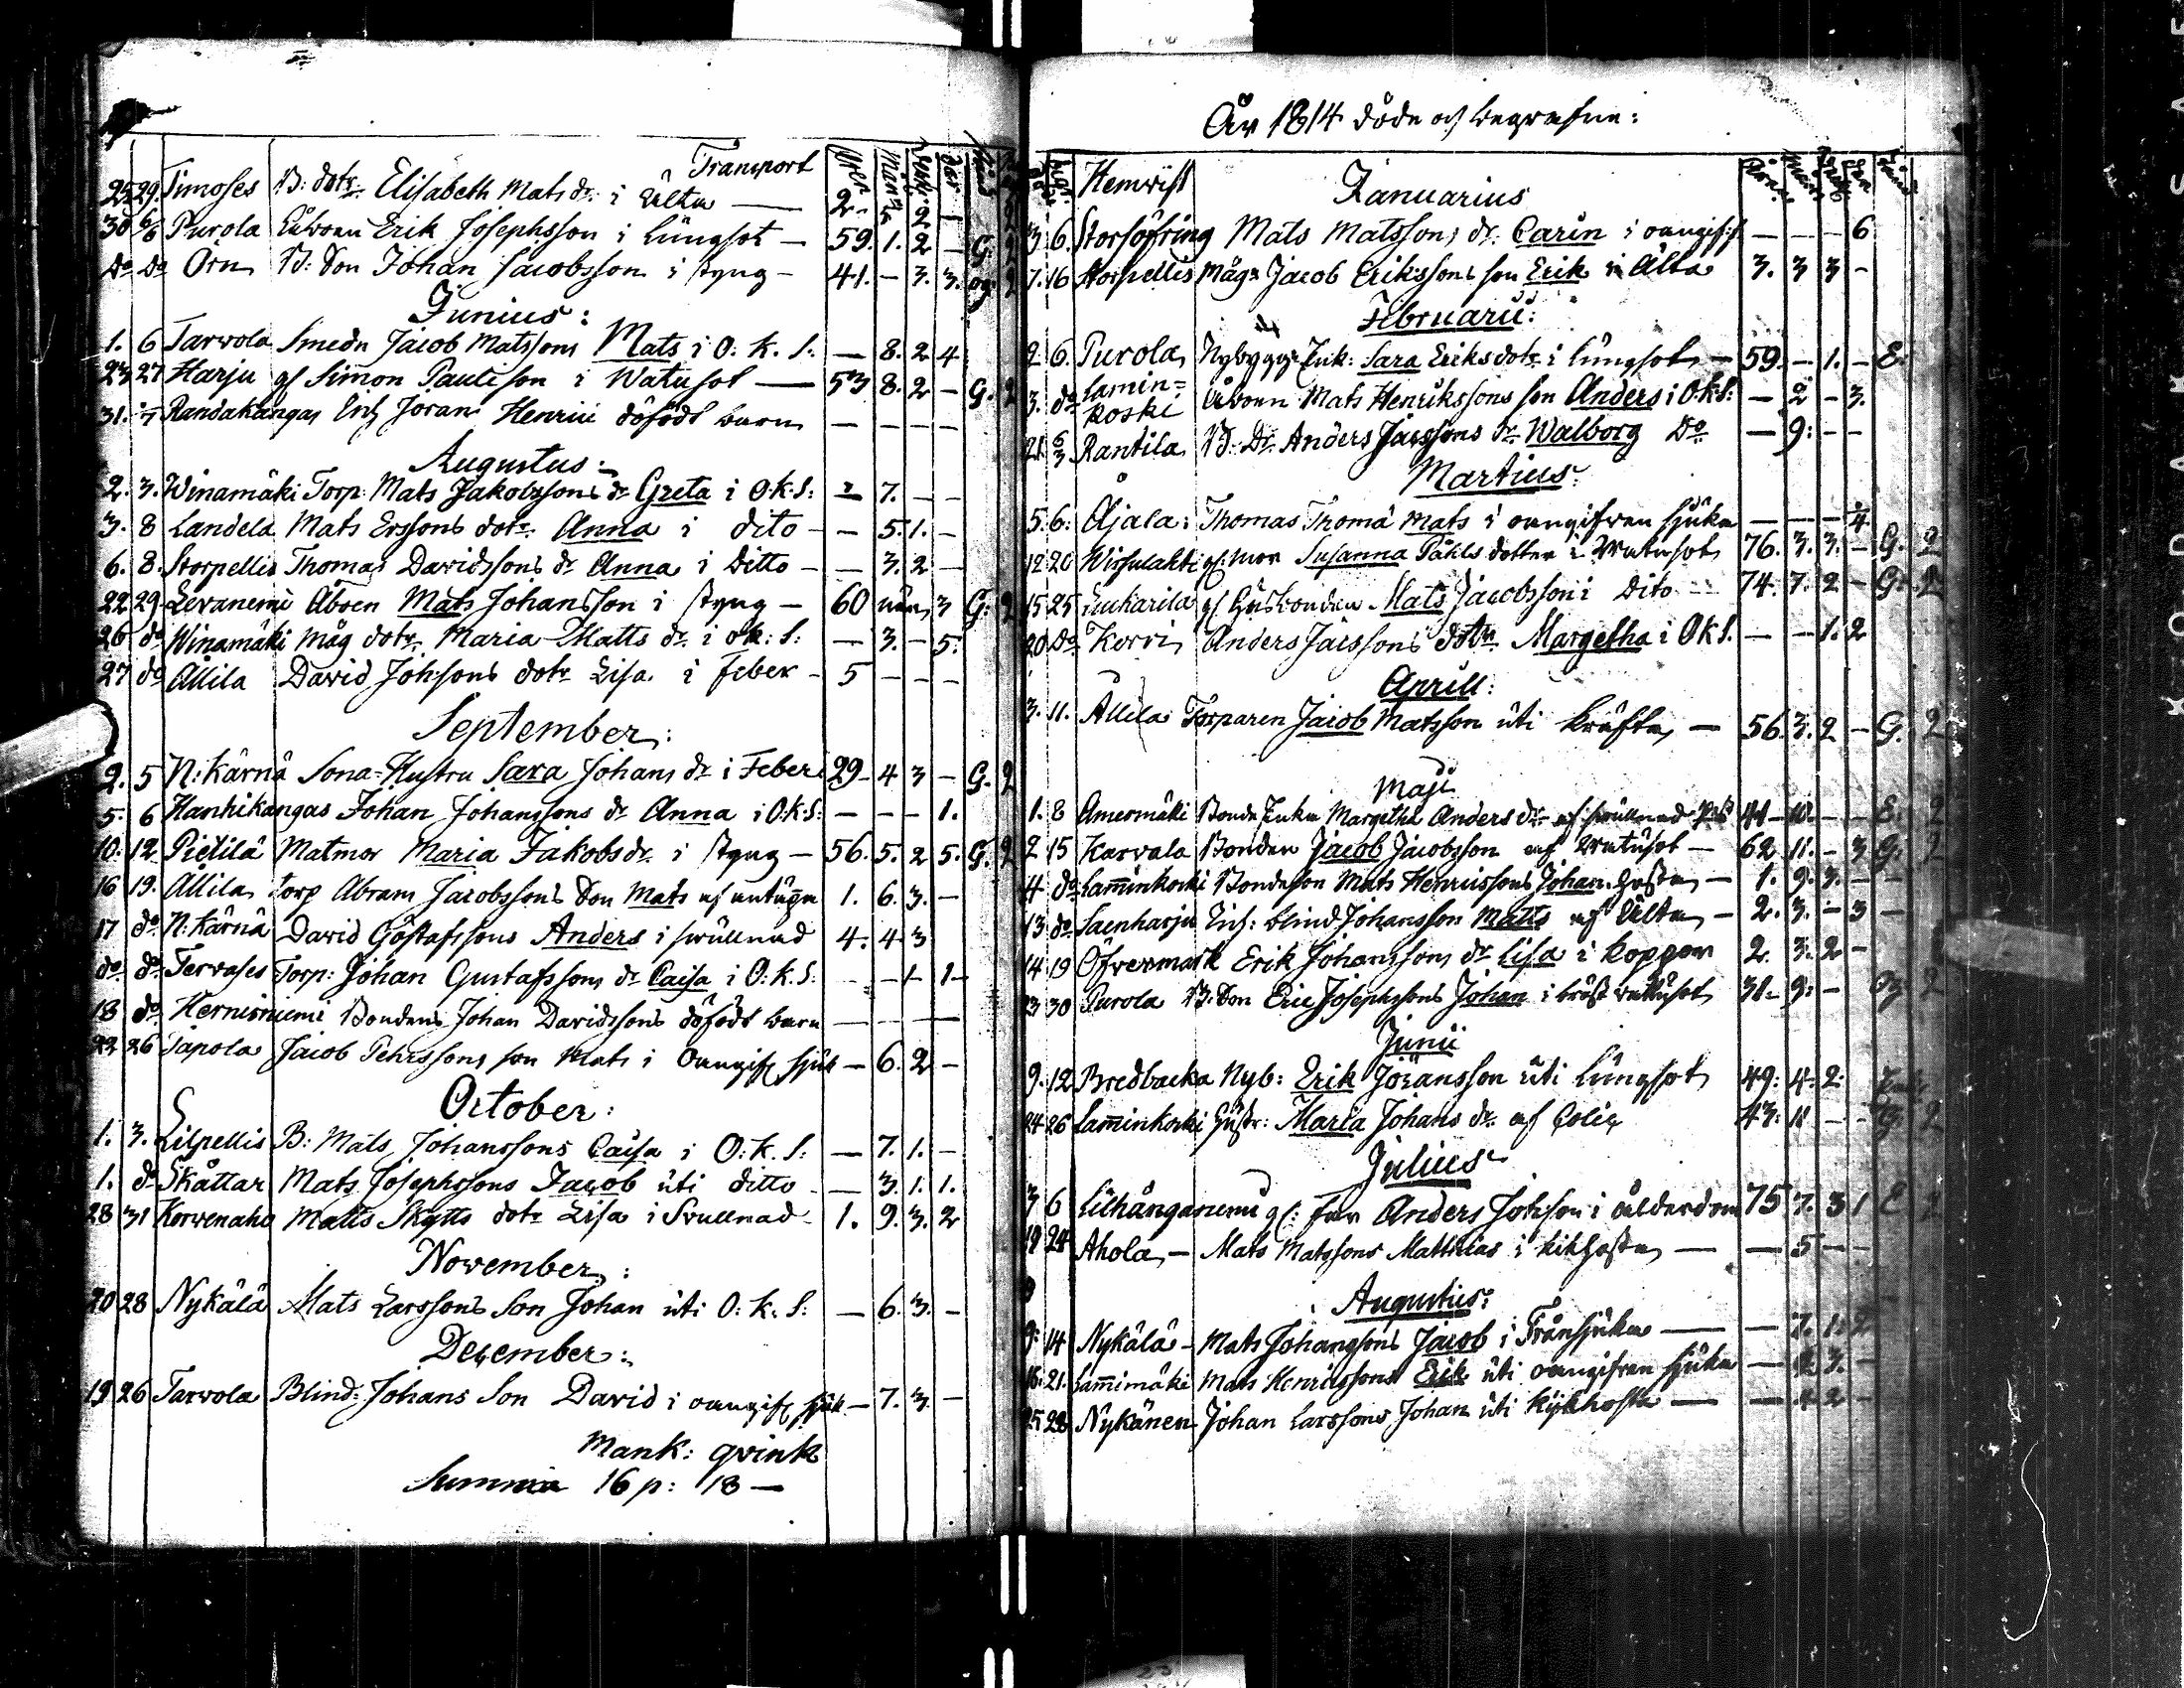 Transport
25 29. Timoses B: dotr. Elisabeth Mats dr. i Ålta — 2 - 2 —
30 6/6 Purola Åboen Erik Josephsson i Lungsot — 59. 1. 2 — G. 2
do do Örn B: Son Johan Jacobsson i styng — 41. — 3. 3. og. 2
Junius:
1. 6 Tarvola Smedn Jacob Matssons Mats i O: K. S: — 8. 2 4
23 27 Harju gl Simon Paulsson i Watusot — 53 8. 2 — G. 2
31. Randakangas Enk Joran Henric döfödt barn — — — —
Augustus:
2. 3. Winamäki Torp: Mats Jakobssons dr Greta i O:K:S: — 7. — —
3. 8 Landela Mats Erssons dotr. Anna i dito — — 5. 1. —
6. 8. Storpellis Thomas Davidssons dr Anna i Ditto — — 3. 2 —
22 29 Levanemi Åboen Mats Johansson i styng — 60 3 G: 2
26 do Winamäki måg dotr. Maria Matts dr. i ok: S: — 3. — 5.
27 do Allila David Johsons dotr Lisa i Feber — 5 — — —
September:
2. 5 N: Kärnä Sona-Hustru Sara Johans dr i Feber 29 — 4 3 — G. 2
5. 6 Hanhikangas Johan Johanssons dr Anna i O:K:S: — — — 1.
10. 12. Pietilä Matmor Maria Jakobsdr. i styng — 56. 5. 2 5. G. 2
16 19. Allila Torp Abram Jacobssons Son Mats af 1. 6. 3. —
17 do N: Kärnä David Göstafssons Anders i swullnad 4. 4 3
do do Tervases Torp: Johan Gustafssons dr Caisa i O: K. S: — — 1 1 —
18 do Hernisniemi Bondens Johan Davidssons döfödt barn — — —
22 26 Tapola Jacob Pehrssons son Mats i Oangif sjuk — 6. 2 —
October:
1. 3. Lilpellis B: Mats Johanssons Caisa i O: K. S: — 7. 1. —
1. do Skåttar Mats Josephssons Jacob uti ditto — 3. 1. 1.
28 31 Korvenaho Matts Skytts dotr Lisa i Svullnad 1. 9. 3. 2
November:
20 28 Nykälä Mats Larssons Son Johan uti O: K: S: — 6. 3. —
December:
19 26 Tarvola Blind: Johans Son David i oangif sjuk — 7. 3 —
Mank: qvink
Summa 16 p: 18 —
År 1814 döde och begrafne:
Hemvist Januarius
3. 6. Storsöfring Mats Matssons dr. Carin i oangif — — — 6
7. 16 Storpellis Måg Jacob Erikssons son Erik i Älta 3. 3 3 —
Februarii:
2 6. Purola Nybygg: Enk: Sara Eriksdotr i Lungsot — 59. — 1. — E.
3. do Lamin=
koski Åboen Mats Henrikssons son Anders i O.k.S: — 2 — 3.
21. 6/3 Rantila B: Dr. Anders Jacssons dr Walborg Do — 9: — —
Martius:
5. 6: Ojala: Thomas Thomä Mats i oangifven sjuka — — — 1/4
12 20 gl: mor Susanna Påhls dotter i Watusot 76. 3. 3. — G. 2
15 25 Eucharila gl Husbonden Mats Jacobsson i Dito 74. 7. 2 — G. 2
20 Do Korvi Anders Jacssons dotr Margetha i O k S. — — 1. 2
Aprill:
3. 11. Allila Torparen Jacob Matsson uti kräfta — 56. 3. 2 — G. 2
Maji
1. 8 Amermäki Bonde Enka Margetha Anders dr af swullnad 44 — 10. — — E: 2
2 15 Karvala Bonden Jacob Jacobsson af Watusot — 62 11. — 3 G. 2
4 do Lamminkoski Bondeson Mats Henricssons Johan hosta — 1. 9. 3. —
13 do Saenharju Inh: blind Johansson Matts af Ålta — 2. 3. — 3 —
14 19 Öfvermark Erik Johanssons dr Lisa i koppor 2 3. 2 —
23 30 Purola B. Son Eric Josephssons Johan i bröst wattusot 31 — 9: — Og. 2
Junii
9. 12 Bredbacka Nyb: Erik Jöransson uti Lungsot 49: 4. 2:
24 26 Lamminkoski Hustr: Maria Johans dr. af Colic 43. 11 — — 2
Julius
3 6 gl: far Anders Johsson i ålderdom 75 7. 3 1 E 2
19 24 Ahola — Mats Matssons Matthias i kikhosta — — 5 — —
Augustus:
9: 14 Nykälä — Mats Johanssons Jacob i Trånsjuka — — 7. 1. 2
16. 21. Lammimäki Mats Henricssons Erik uti oangifven sjuka — 2 3. —
25 28 Nykänen Johan Larssons Johan uti kykhosta — — 4 2 —